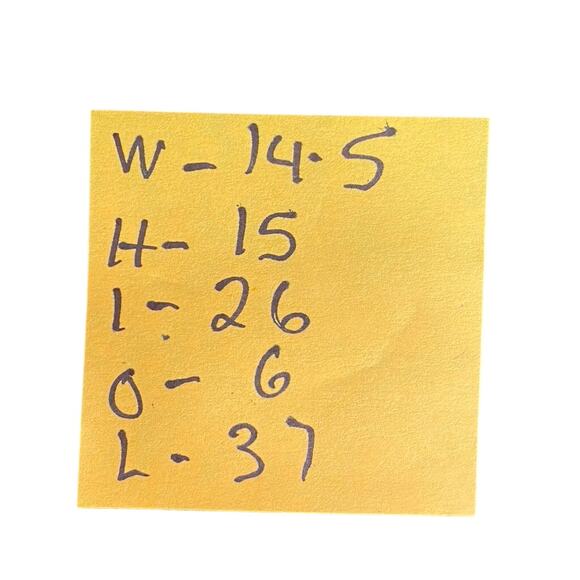 W - 14.5
H - 15
I - 26
O - 6
L - 37